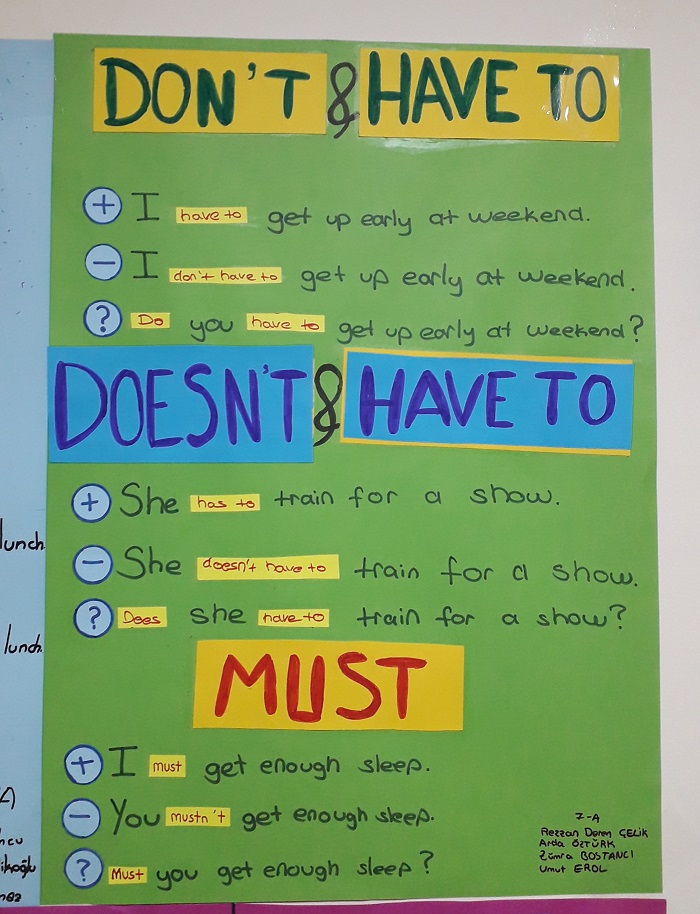 DON'T & HAVE TO
+ I have to get up early at weekend.
- I don't have to get up early at weekend.
? Do you have to get up early at weekend?
DOESN'T & HAVE TO
+ She has to train for a show.
- She doesn't have to train for a show.
? Does she have to train for a show?
MUST
+ I must get enough sleep.
- You mustn't get enough sleep.
? Must you get enough sleep?
7-A
Rezzan Deren ÇELİK
Arda ÖZTÜRK
Zümra BOSTANCI
Umut EROL
lunch
lunch.